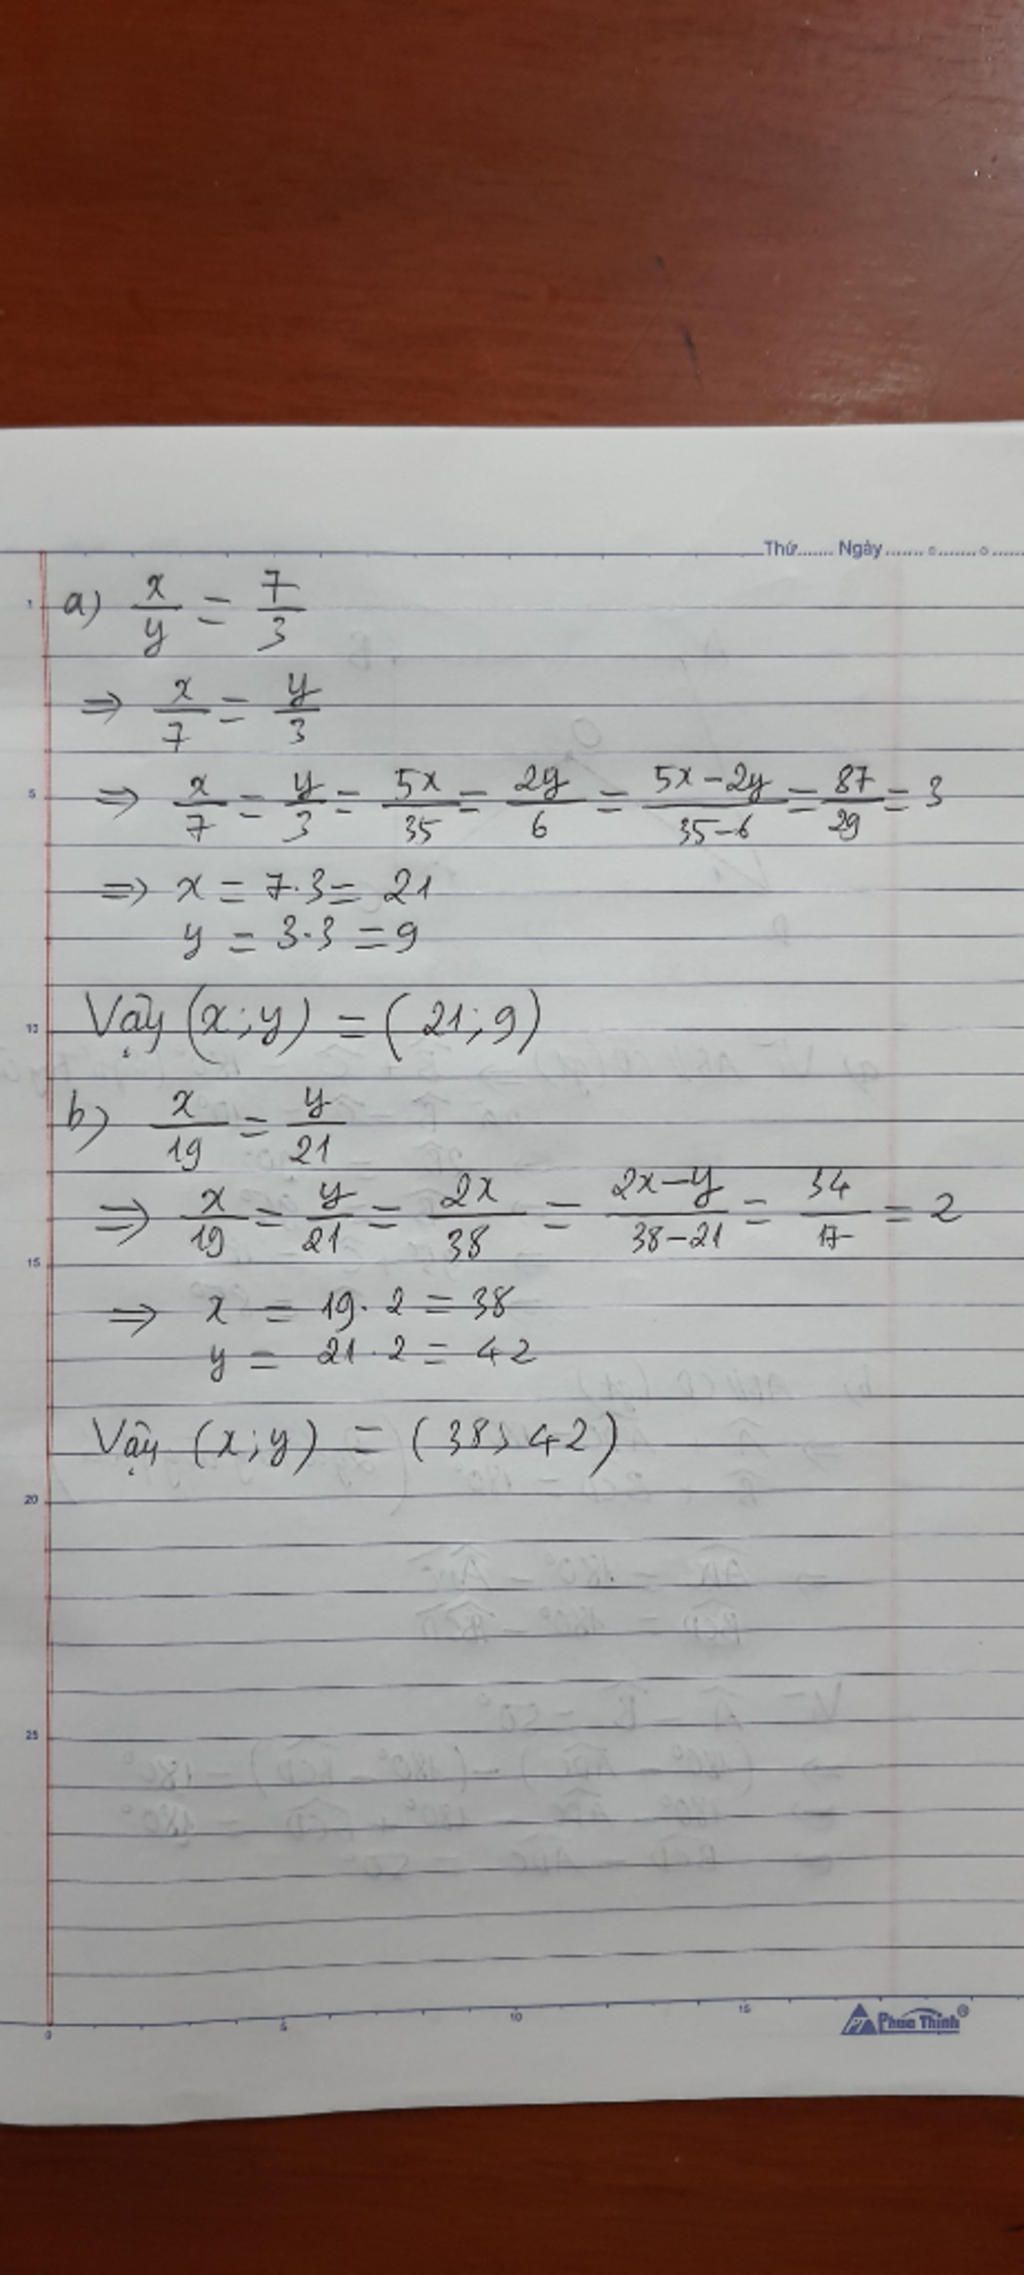 Thứ....... Ngày.......
a) x/y = 7/3
⇒ x/7 = y/3
⇒ x/7 = y/3 = 5x/35 = 2y/6 = (5x-2y)/(35-6) = 87/29 = 3
⇒ x = 7.3 = 21
y = 3.3 = 9
Vậy (x;y) = (21;9)
b) x/19 = y/21
⇒ x/19 = y/21 = 2x/38 = (2x-y)/(38-21) = 34/17 = 2
⇒ x = 19.2 = 38
y = 21.2 = 42
Vậy (x;y) = (38;42)
Phuc Thinh